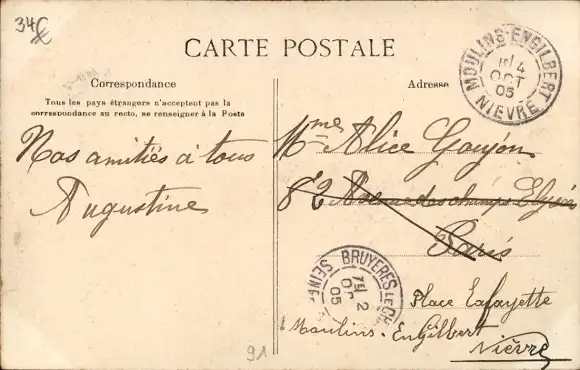 34€
CARTE POSTALE
MOULINS-ENGILBERT
4
OCT
05
NIEVRE
Correspondance
Adresse
Tous les pays étrangers n'acceptent pas la
correspondance au recto, se renseigner à la Poste
Nos amitiés à tous
Augustine
Mme Alice Goujon
82 Avenue des champs Elysées
Paris
BRUYERES-LE-CH
SEINE
2
OC
05
Place Lafayette
à Moulins-Engilbert
Nièvre
91